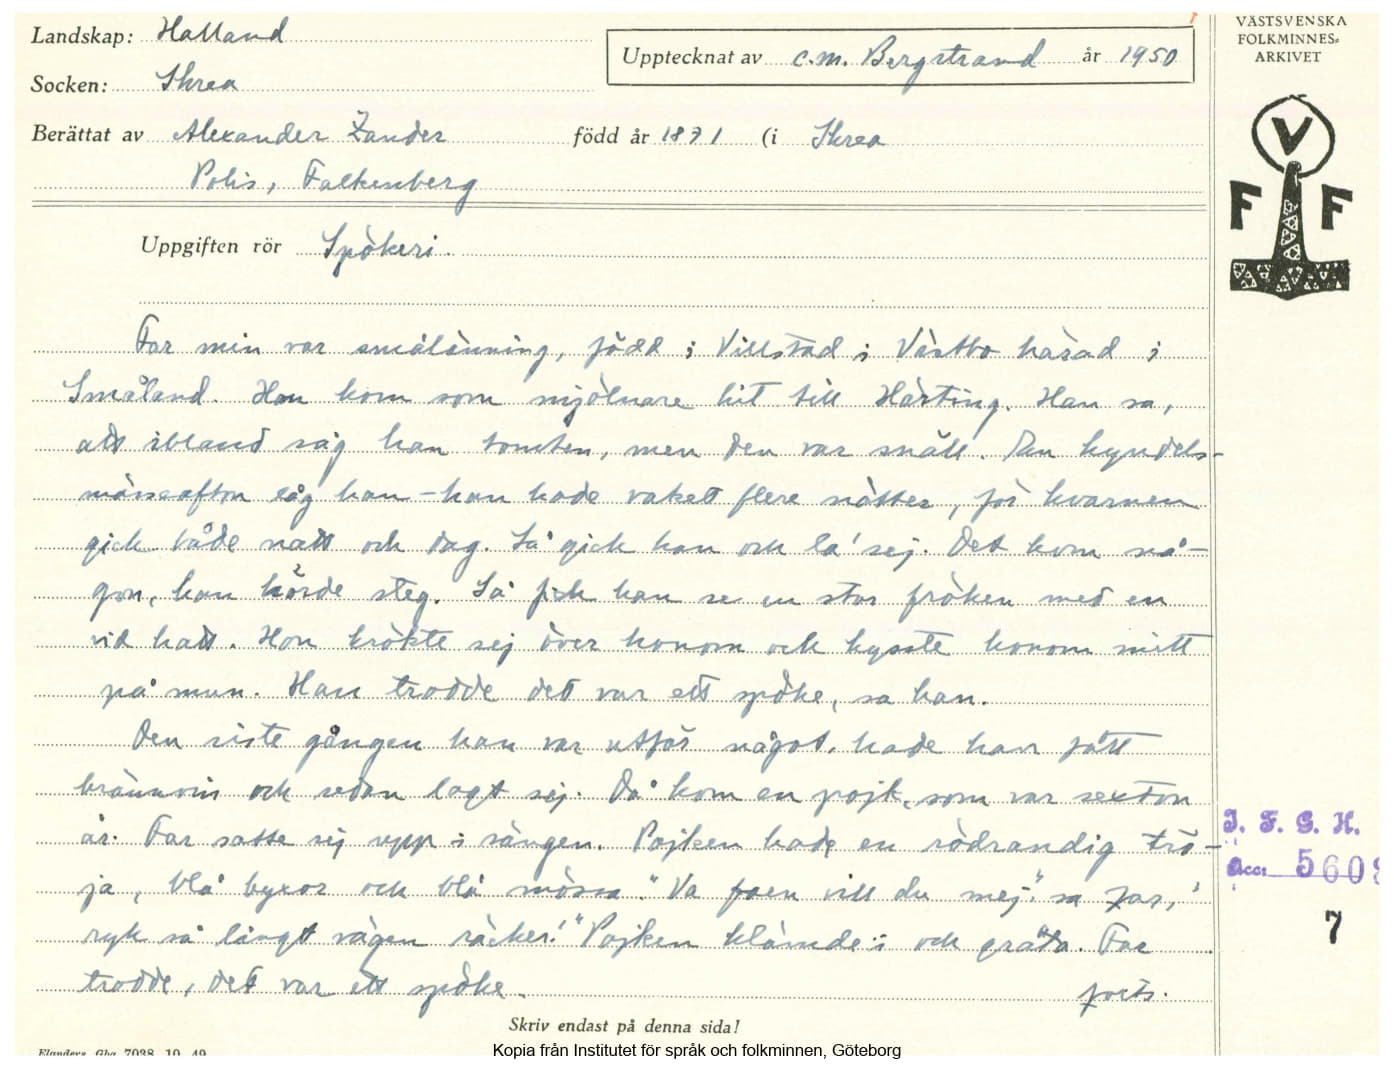 Landskap: Halland
Upptecknat av C.M. Bergstrand år 1950
VÄSTSVENSKA
FOLKMINNES-
ARKIVET
Socken: Skrea
Berättat av Alexander Zander född år 1871 (i Skrea
Polis, Falkenberg
V
F F
Uppgiften rör Spökeri.
Far min var smålänning, född i Villstad i Västbo härad i
Småland. Han kom som mjölnare hit till Härting. Han sa,
att ibland såg han tomten, men den var snäll. En kyndels-
mässeafton låg han – han hade vaket flere nätter, för kvarnen
gick både natt och dag. Så gick han och la' sej. Det kom nå-
gon, han hörde steg. Så fick han se en stor fröken med en
vid hatt. Hon krökte sej över honom och kysste honom mitt
på mun. Han trodde det var ett spöke, sa han.
Den siste gången han var utför något, hade han fått
brännvin och sedan lagt sej. Då kom en pojk, som var sexton
år. Far satte sej upp i sängen. Pojken hade en rödrandig trö-
ja, blå byxor och blå mössa. "Va faen vill du mej", sa far, '
ryk så långt vägen räcker!" Pojken klämde i och gråta. Far
trodde, det var ett spöke.
forts.
I. F. G. H.
Acc: 5608
7
Skriv endast på denna sida!
Elanders Gbg 7038 10 49
Kopia från Institutet för språk och folkminnen, Göteborg